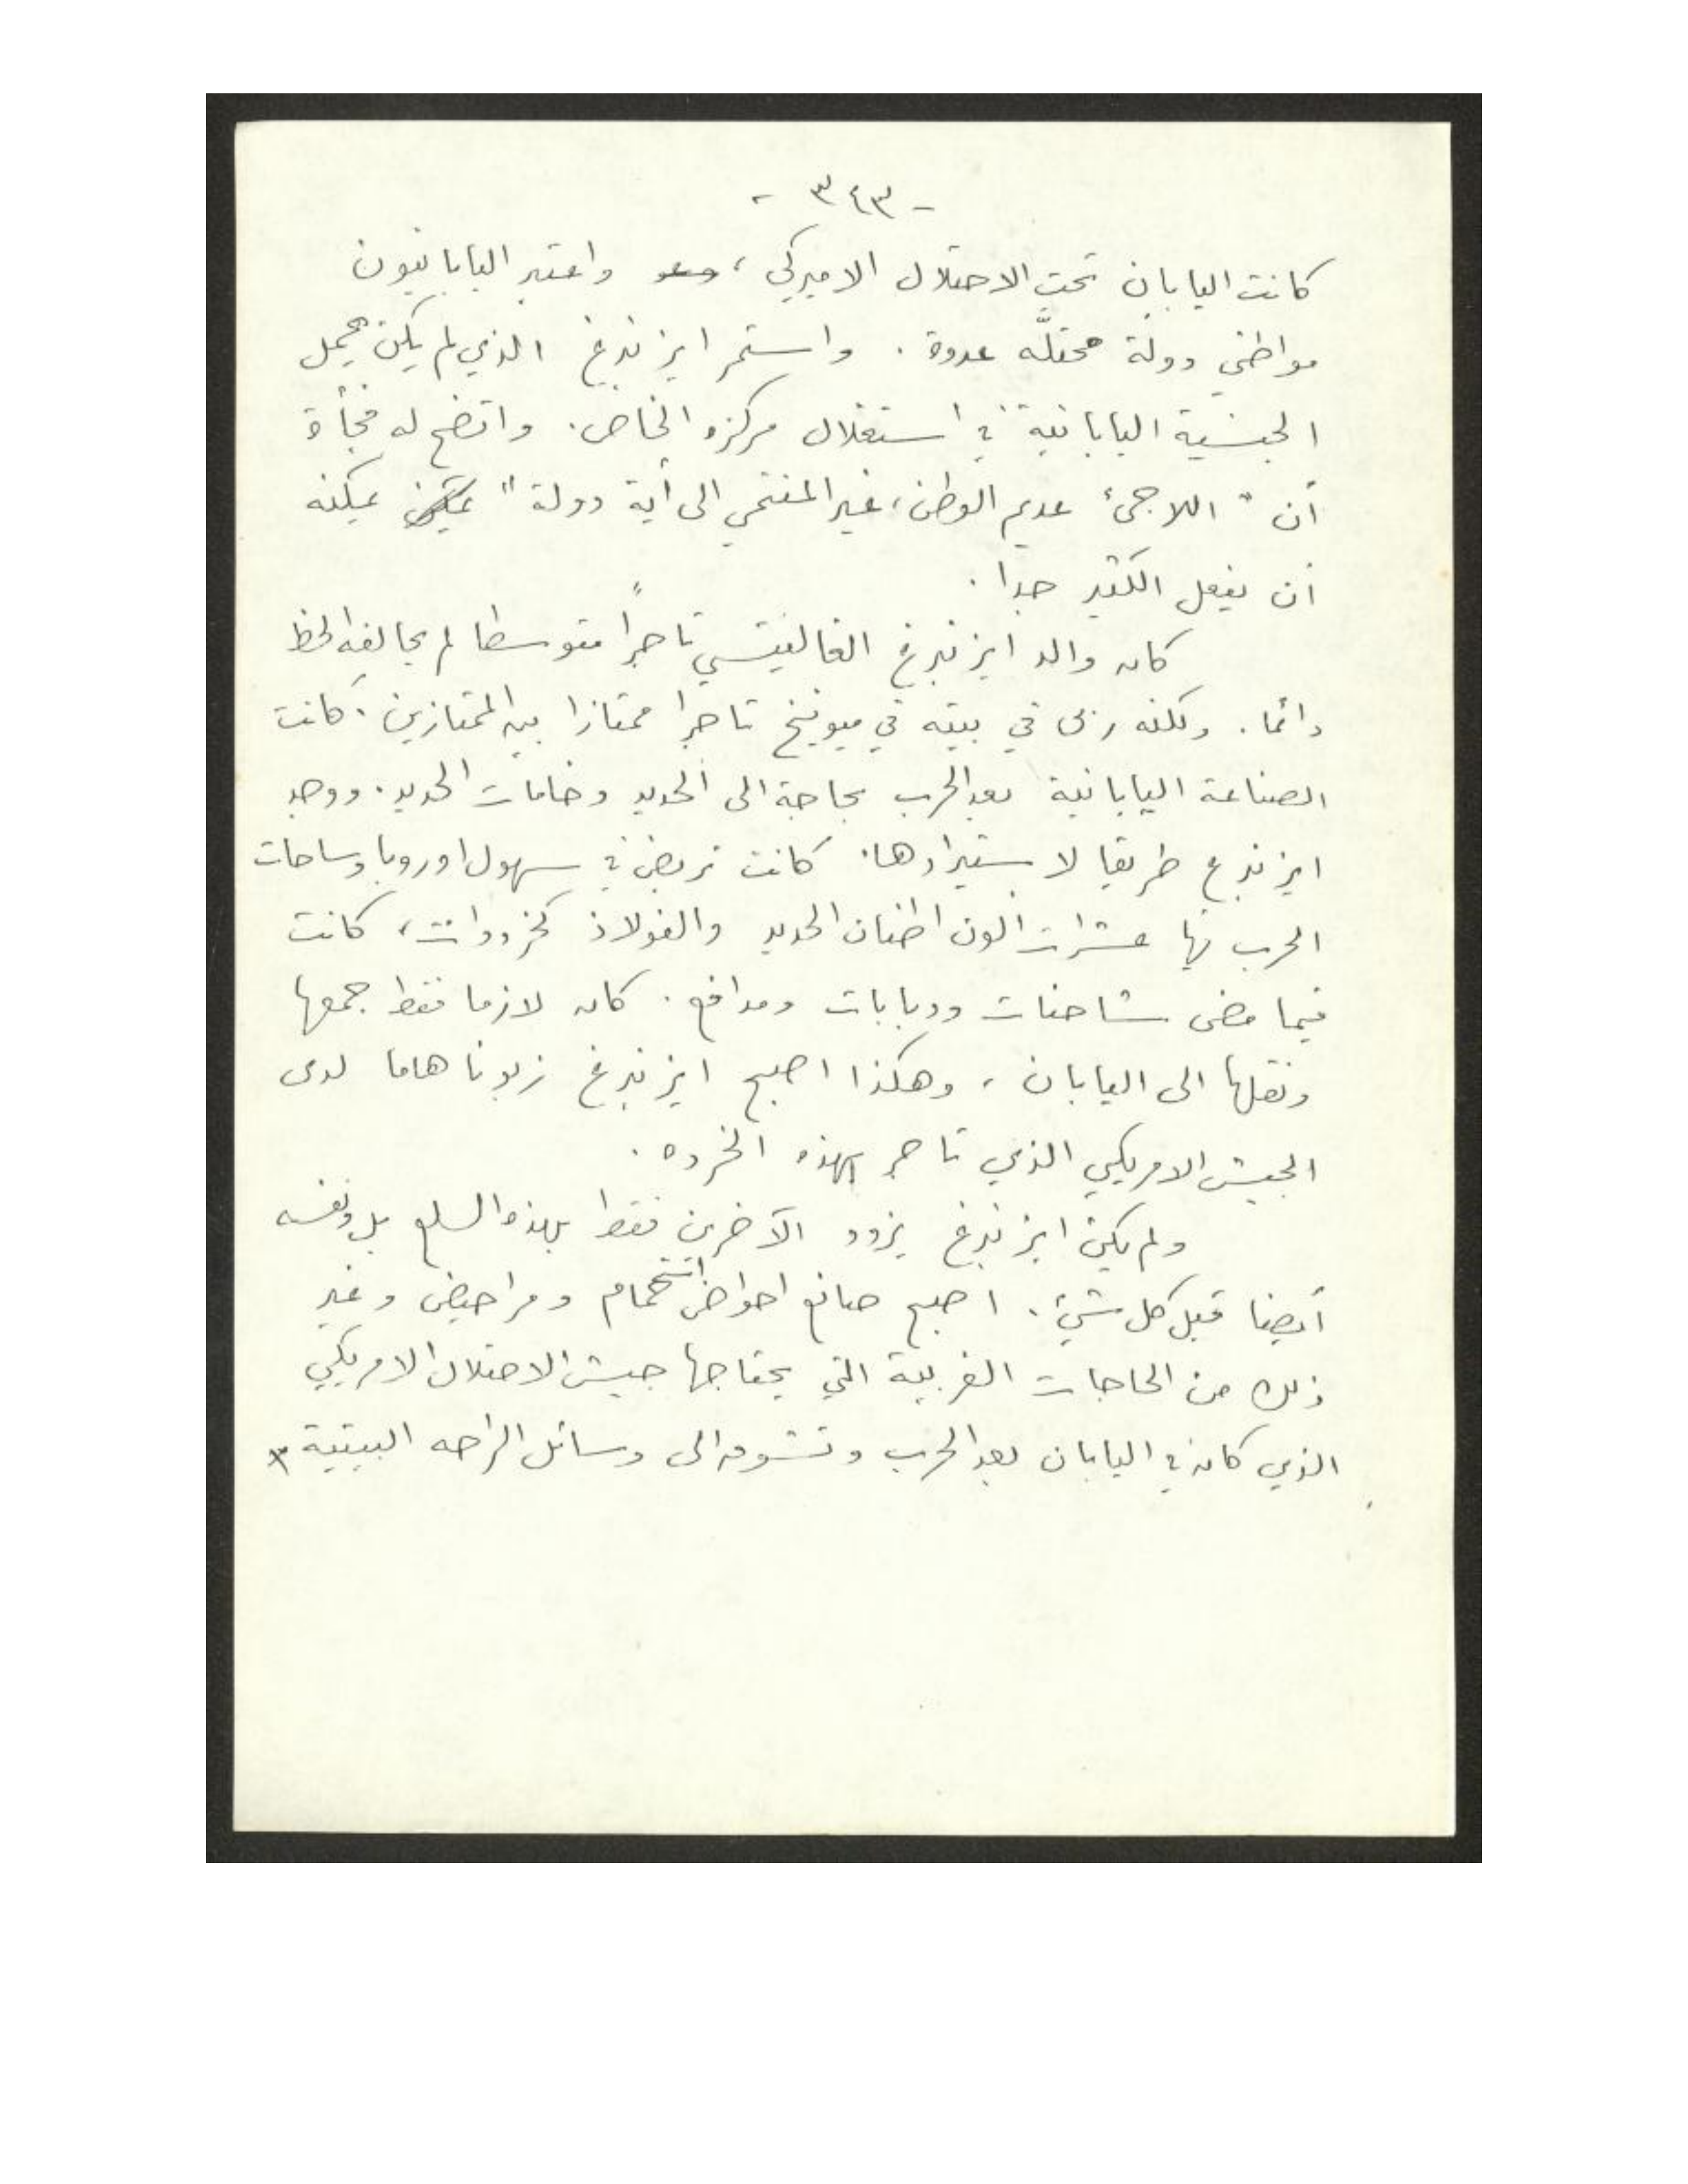 - ٣٤٣ -
كانت اليابان تحت الاحتلال الاميركي، واعتبر اليابانيون
مواطني دولة محتلّه عدوة . واستمر ايزنبرغ الذي لم يكن يحمل
الجنسية اليابانية في استغلال مركزه الخاص. واتضح له فجأة
أن " اللاجئ عديم الوطن، غير المنتمي الى أية دولة " يمكنه
أن يفعل الكثير جدا .
كان والد ايزنبرغ الغاليتسي تاجراً متوسطا لم يحالفه الحظ
دائما . ولكنه ربى في بيته في ميونيخ تاجرا ممتازا بين الممتازين . كانت
الصناعة اليابانية بعد الحرب بحاجة الى الحديد وخامات الحديد. ووجد
ايزنبرغ طريقا لاستيرادها. كانت تربض في سهول اوروبا وساحات
الحرب فيها عشرات ألوف اطنان الحديد والفولاذ كخردوات، كانت
فيما مضى شاحنات ودبابات ومدافع . كان لازما فقط جمعها
ونقلها الى اليابان ، وهكذا اصبح ايزنبرغ زبونا هاما لدى
الجيش الامريكي الذي تاجر بهذه الخرده .
ولم يكن ايزنبرغ يزود الآخرين فقط بهذه السلع بل ونفسه
أيضا قبل كل شيئ . اصبح صانع احواض استحمام ومراحيض وغير
ذلك من الحاجات الغربية التي يحتاجها جيش الاحتلال الامريكي
الذي كان في اليابان بعد الحرب وتشوق الى وسائل الراحه البيتية